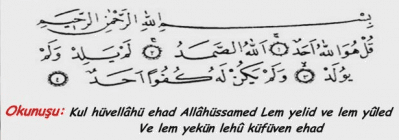 بِسْمِ اللهِ الرَّحْمٰنِ الرَّحِيمِ
قُلْ هُوَ اللهُ اَحَدٌ ١ اَللهُ الصَّمَدُ ٢ لَمْ يَلِدْ وَلَمْ
يُولَدْ ٣ وَلَمْ يَكُنْ لَهُ كُفُوًا اَحَدٌ ٤
Okunuşu: Kul hüvellâhü ehad Allâhüssamed Lem yelid ve lem yûled
Ve lem yekün lehû küfüven ehad